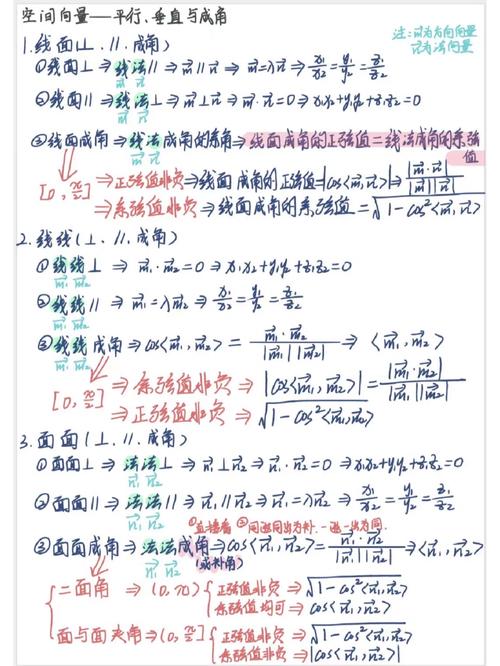 空间向量——平行、垂直与成角
1.线面(⊥.∥.成角)
注:m⃗为方向向量
n⃗为法向量
①线面⊥⇒线法∥⇒m⃗∥n⃗⇒m⃗=λn⃗⇒x₁/x₂=y₁/y₂=z₁/z₂
m⃗ n⃗
②线面∥⇒线法⊥⇒m⃗⊥n⃗⇒m⃗·n⃗=0⇒x₁x₂+y₁y₂+z₁z₂=0
m⃗ n⃗
③线面成角⇒线法成角的余角⇒线面成角的正弦值=线法成角的余弦值
m⃗ n⃗
[0,π/2]⇒正弦值非负⇒线面成角的正弦值=|cos<m⃗,n⃗>|⇒|m⃗·n⃗|/|m⃗||n⃗|
⇒余弦值非负⇒线面成角的余弦值=√1-cos²<m⃗,n⃗>
2.线线(⊥.∥.成角)
①线线⊥⇒m⃗₁·m⃗₂=0⇒x₁x₂+y₁y₂+z₁z₂=0
m⃗₁ m⃗₂
②线线∥⇒m⃗₁=λm⃗₂⇒x₁/x₂=y₁/y₂=z₁/z₂
m⃗₁ m⃗₂
③线线成角⇒cos<m⃗₁,m⃗₂>=m⃗₁·m⃗₂/|m⃗₁||m⃗₂|⇒<m⃗₁,m⃗₂>
m⃗₁ m⃗₂
[0,π/2]⇒余弦值非负⇒|cos<m⃗₁,m⃗₂>|=|m⃗₁·m⃗₂|/|m⃗₁||m⃗₂|
⇒正弦值非负⇒√1-cos²<m⃗₁,m⃗₂>
3.面面(⊥.∥.成角)
①面面⊥⇒法法⊥⇒n⃗₁⊥n⃗₂⇒n⃗₁·n⃗₂=0⇒x₁x₂+y₁y₂+z₁z₂=0
n⃗₁ n⃗₂
②面面∥⇒法法∥⇒n⃗₁∥n⃗₂⇒n⃗₁=λn⃗₂⇒x₁/x₂=y₁/y₂=z₁/z₂
n⃗₁ n⃗₂
①直接看 ②同进同出为补.一进一出为同
③面面成角⇒法法成角⇒cos<n⃗₁,n⃗₂>=n⃗₁·n⃗₂/|n⃗₁||n⃗₂|⇒<n⃗₁,n⃗₂>
n⃗₁ n⃗₂ (或补角)
二面角⇒(0,π){正弦值非负⇒√1-cos²<n⃗₁,n⃗₂>
余弦值均可⇒cos<n⃗₁,n⃗₂>
面与面夹角⇒(0,π/2]{正弦值非负⇒√1-cos²<n⃗₁,n⃗₂>
余弦值非负⇒|cos<n⃗₁,n⃗₂>|